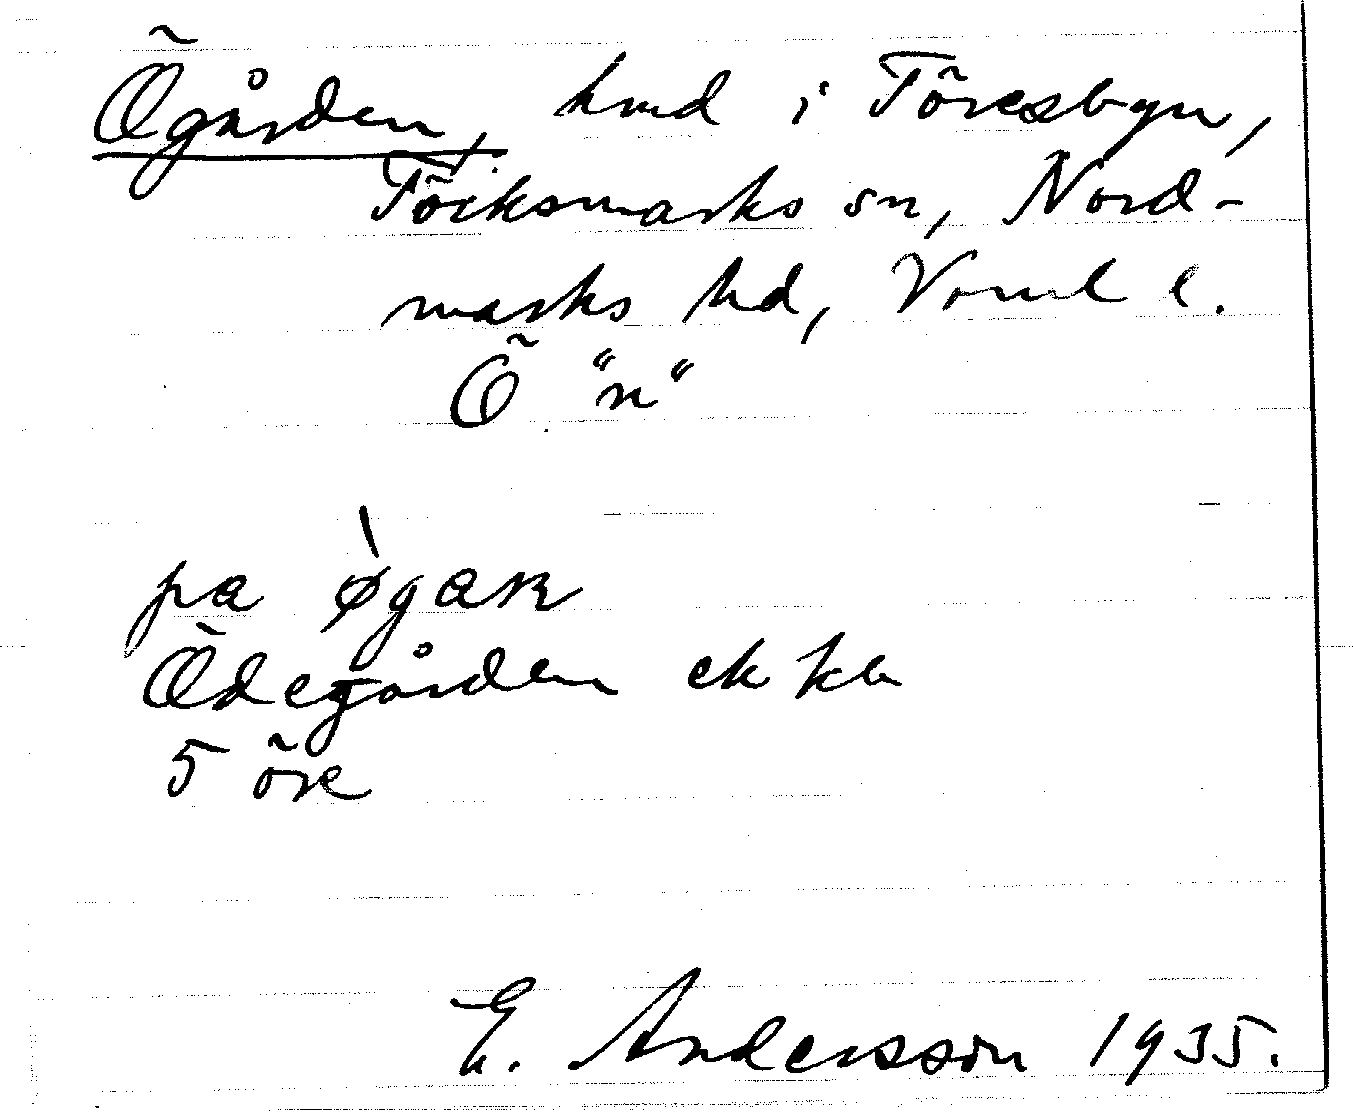 Ögården, hmd i Töresbyn,
Töcksmarks sn, Nord-
marks hd, Verml l.
Ö "n"
pa øgaɳ
Ödegården ek ka
5 öre
E. Andersson 1935.